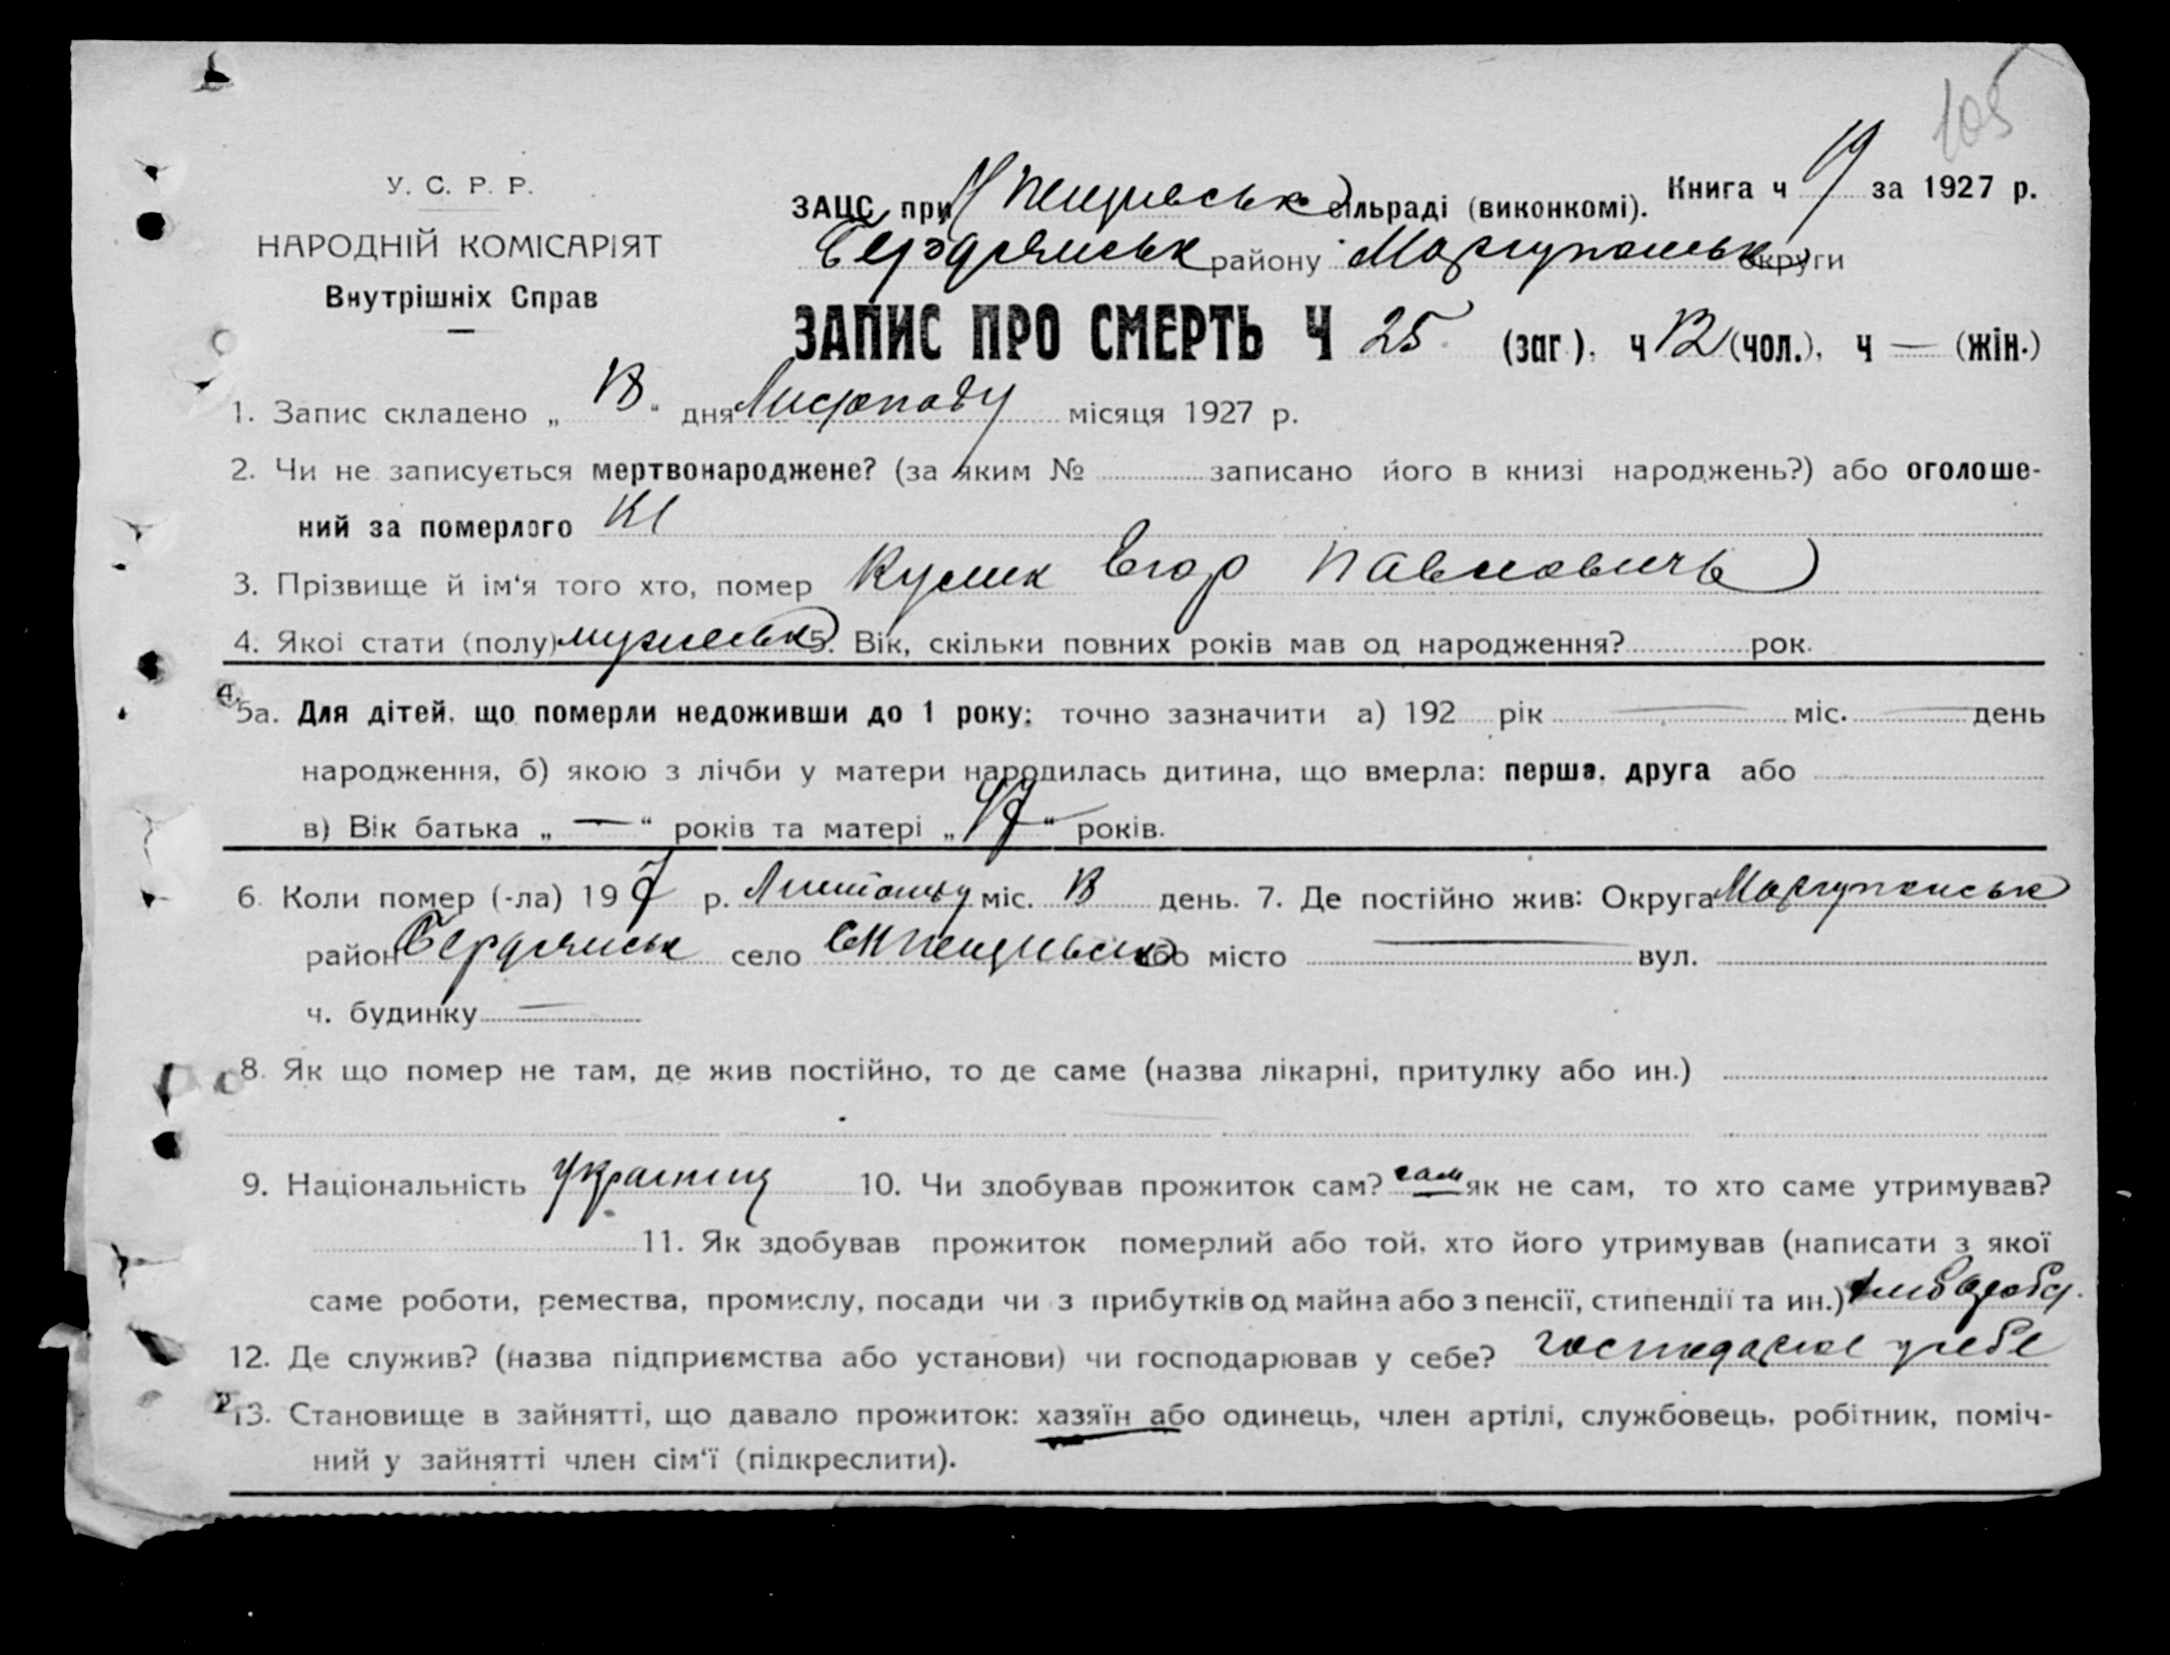 105
У. С. Р. Р.
НАРОДНІЙ КОМІСАРІЯТ
Внутрішніх Справ
ЗАЦС при сільраді (виконкомі). Книга ч за 1927 р.
Бердянськ району Маріупольськ округи
ЗАПИС ПРО СМЕРТЬ Ч 25 (заг.), ч 12 (чол.), ч — (жін.)
1. Запис складено „ “ дня Листопаду місяця 1927 р.
2. Чи не записується мертвонароджене? (за яким № записано його в книзі народжень?) або оголоше-
ний за померлого
3. Прізвище й ім‘я того хто, помер Кулик Егор Павловичь
4. Якої стати (полу) мужеськ 5. Вік, скільки повних років мав од народження? рок.
5а. Для дітей, що померли недоживши до 1 року: точно зазначити а) 192 рік — міс. — день
народження, б) якою з лічби у матери народилась дитина, що вмерла: перша, друга або
в) Вік батька „ — “ років та матері „ “ років.
6. Коли помер (-ла) 19 7 р. міс. день. 7. Де постійно жив: Округа Маріупольськ
район Бердянськ село або місто — вул.
ч. будинку —
8. Як що помер не там, де жив постійно, то де саме (назва лікарні, притулку або ин.)
9. Національність Украинец 10. Чи здобував прожиток сам? сам як не сам, то хто саме утримував?
11. Як здобував прожиток померлий або той, хто його утримував (написати з якої
саме роботи, ремества, промислу, посади чи з прибутків од майна або з пенсії, стипендії та ин.)
12. Де служив? (назва підприємства або установи) чи господарював у себе? у себе
13. Становище в зайнятті, що давало прожиток: хазяїн або одинець, член артілі, службовець, робітник, поміч-
ний у зайнятті член сім‘ї (підкреслити).